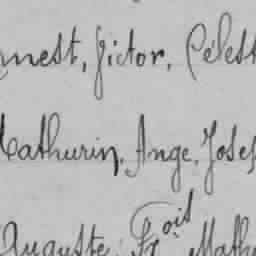 rnest, Victor, Célest
Mathurin, Ange, Josep
Auguste, Fçois Mathu